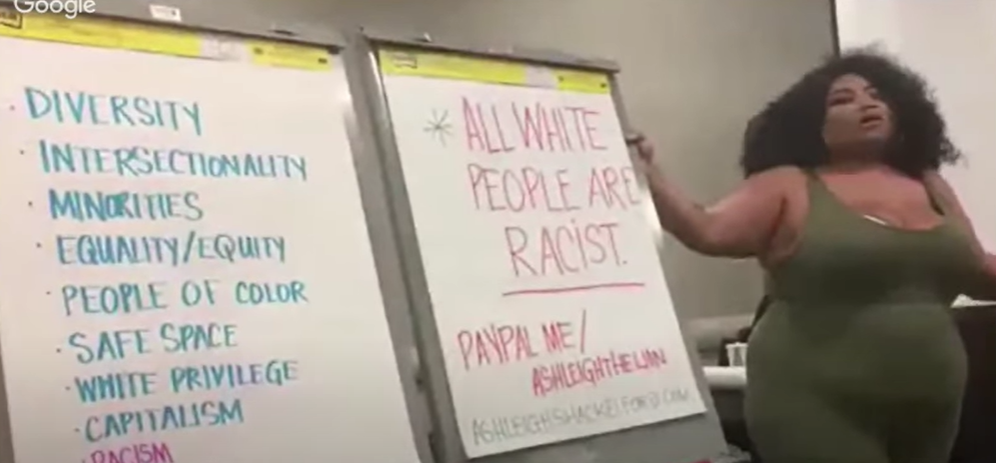 Google
DIVERSITY
INTERSECTIONALITY
MINORITIES
EQUALITY/EQUITY
PEOPLE OF COLOR
SAFE SPACE
WHITE PRIVILEGE
CAPITALISM
RACISM
* ALL WHITE
PEOPLE ARE
RACIST.
PAYPAL ME/
ASHLEIGHTHELION
ASHLEIGHSHACKELFORD.COM